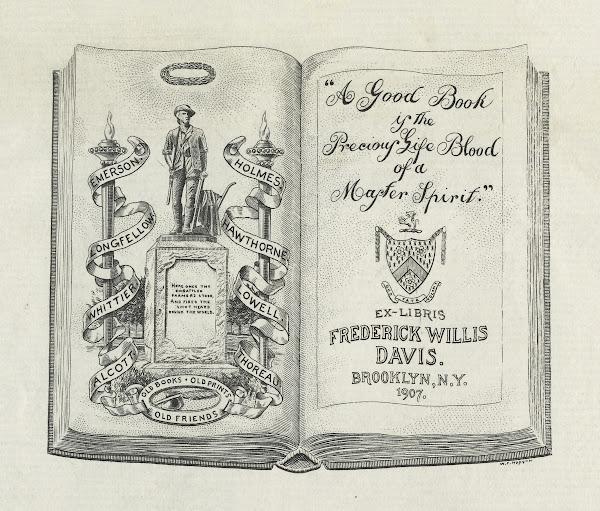 EMERSON.
LONGFELLOW
WHITTIER
ALCOTT
HOLMES.
HAWTHORNE
LOWELL
THOREAU
HERE ONCE THE
EMBATTLED
FARMERS STOOD,
AND FIRED THE
SHOT HEARD
ROUND THE WORLD.
OLD BOOKS • OLD PRINTS
OLD FRIENDS
"A Good Book
ys the
Precious Life Blood
of a
Master Spirit."
EX-LIBRIS
FREDERICK WILLIS
DAVIS.
BROOKLYN, N.Y.
1907.